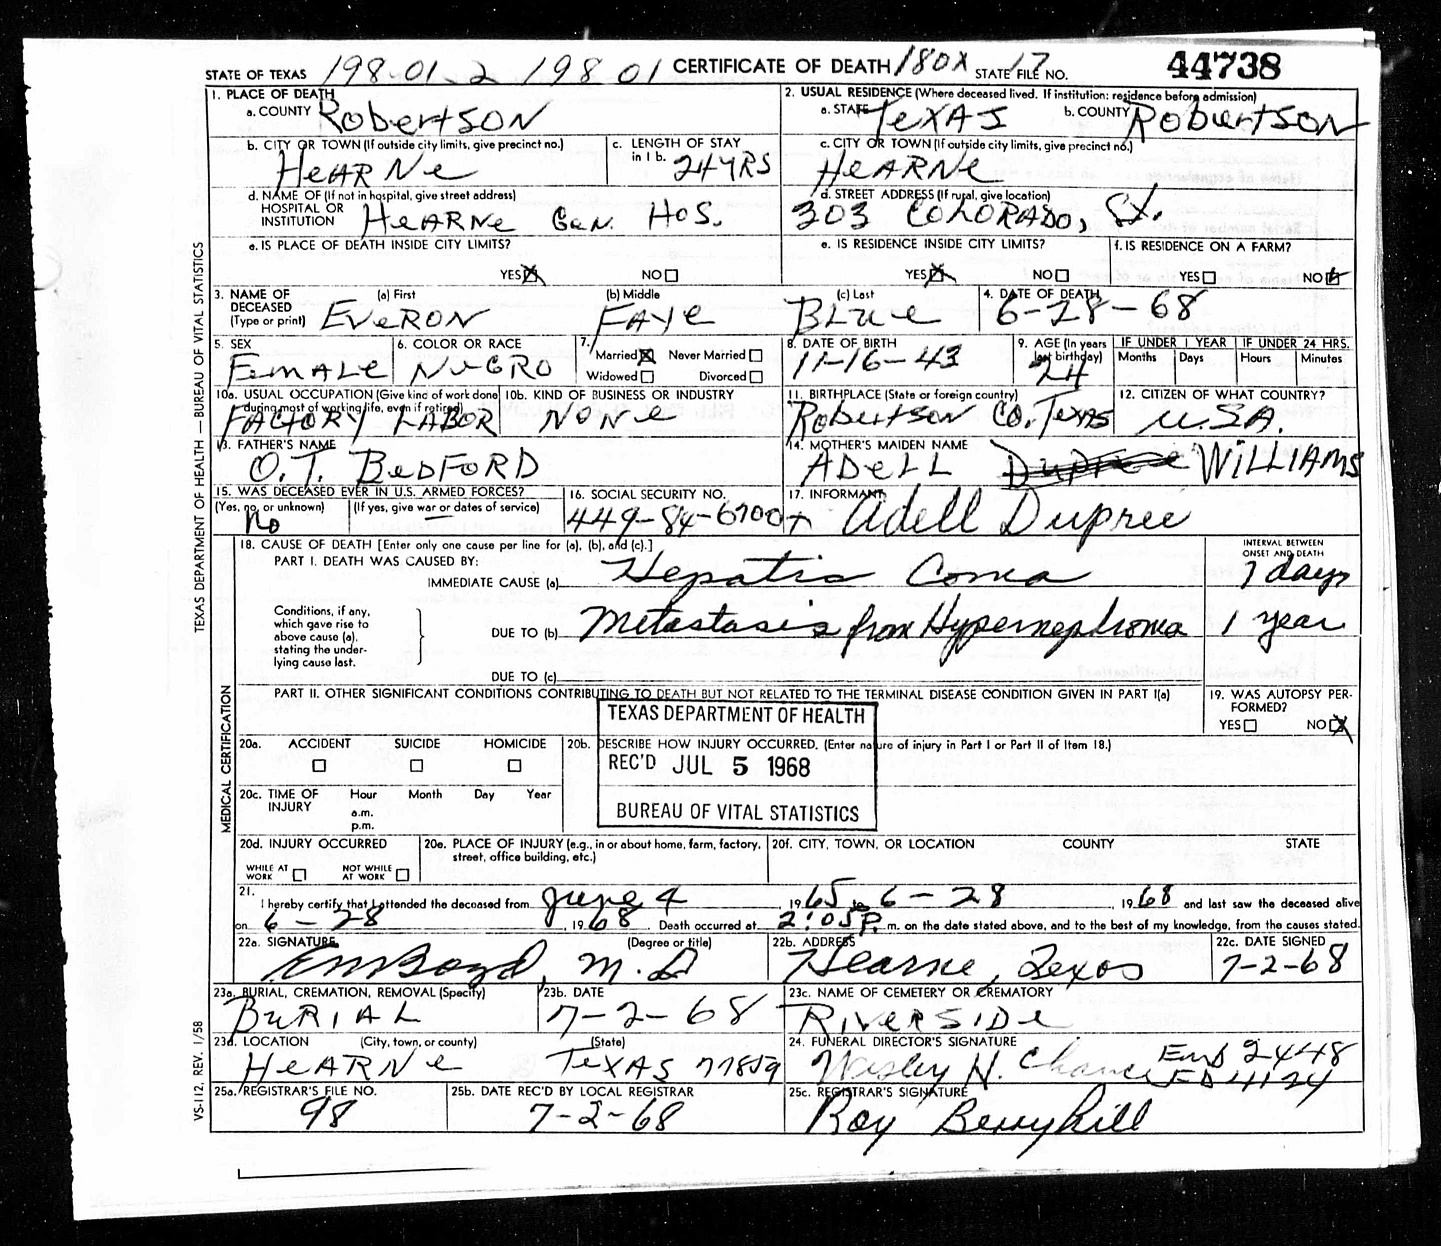 STATE OF TEXAS 198-01-2 198 01 CERTIFICATE OF DEATH 180X STATE FILE NO. 17 44738
1. PLACE OF DEATH
a. COUNTY Robertson
2. USUAL RESIDENCE (Where deceased lived. If institution: residence before admission)
a. STATE TEXAS b. COUNTY Robertson
b. CITY OR TOWN (If outside city limits, give precinct no.)
HEARNe
c. LENGTH OF STAY in 1 b.
24 YRS
c. CITY OR TOWN (If outside city limits, give precinct no.)
HeARNe
d. NAME OF (If not in hospital, give street address)
HOSPITAL OR INSTITUTION HEARNe Gen. HOS.
d. STREET ADDRESS (If rural, give location)
303 COLORADO, St.
e. IS PLACE OF DEATH INSIDE CITY LIMITS?
YES NO
e. IS RESIDENCE INSIDE CITY LIMITS?
YES NO
f. IS RESIDENCE ON A FARM?
YES NO
3. NAME OF DECEASED (Type or print)
(a) First (b) Middle (c) Last
EVeRON FAYe BLue
4. DATE OF DEATH
6-28-68
5. SEX
FemALe
6. COLOR OR RACE
NeGRO
7.
Married Never Married
Widowed Divorced
8. DATE OF BIRTH
11-16-43
9. AGE (In years last birthday)
24
IF UNDER 1 YEAR IF UNDER 24 HRS.
Months Days Hours Minutes
10a. USUAL OCCUPATION (Give kind of work done during most of working life, even if retired)
FACTORY LABOR
10b. KIND OF BUSINESS OR INDUSTRY
NONe
11. BIRTHPLACE (State or foreign country)
Robertson CO. Texas
12. CITIZEN OF WHAT COUNTRY?
U.S.A.
13. FATHER'S NAME
O.T. BeDFORD
14. MOTHER'S MAIDEN NAME
ADeLL Dupree WILLIAMS
15. WAS DECEASED EVER IN U.S. ARMED FORCES?
(Yes, no, or unknown) (If yes, give war or dates of service)
No —
16. SOCIAL SECURITY NO.
449-84-6700
17. INFORMANT
+ Adell Dupree
18. CAUSE OF DEATH [Enter only one cause per line for (a), (b), and (c).]
INTERVAL BETWEEN ONSET AND DEATH
PART I. DEATH WAS CAUSED BY:
IMMEDIATE CAUSE (a) Hepatic Coma 7 days
Conditions, if any,
which gave rise to
above cause (a),
stating the under-
lying cause last.
DUE TO (b) Metastasis from Hypernephroma 1 year
DUE TO (c)
PART II. OTHER SIGNIFICANT CONDITIONS CONTRIBUTING TO DEATH BUT NOT RELATED TO THE TERMINAL DISEASE CONDITION GIVEN IN PART I(a)
19. WAS AUTOPSY PER-
FORMED?
YES NO
TEXAS DEPARTMENT OF HEALTH
REC'D JUL 5 1968
BUREAU OF VITAL STATISTICS
20a. ACCIDENT SUICIDE HOMICIDE
20b. DESCRIBE HOW INJURY OCCURRED. (Enter nature of injury in Part I or Part II of Item 18.)
20c. TIME OF INJURY Hour Month Day Year
a.m.
p.m.
20d. INJURY OCCURRED
WHILE AT WORK NOT WHILE AT WORK
20e. PLACE OF INJURY (e.g., in or about home, farm, factory, street, office building, etc.)
20f. CITY, TOWN, OR LOCATION COUNTY STATE
21.
I hereby certify that I attended the deceased from June 4, 1965 to 6-28, 1968 and last saw the deceased alive
on 6-28 1968. Death occurred at 2:05 P. m. on the date stated above, and to the best of my knowledge, from the causes stated.
22a. SIGNATURE (Degree or title)
EM Boyd, M.D
22b. ADDRESS
Hearne, Texas
22c. DATE SIGNED
7-2-68
23a. BURIAL, CREMATION, REMOVAL (Specify)
BuRIAL
23b. DATE
7-2-68
23c. NAME OF CEMETERY OR CREMATORY
RIVeRSIDe
23d. LOCATION (City, town, or county) (State)
HeARNe TEXAS 77859
24. FUNERAL DIRECTOR'S SIGNATURE
Wesley H. Chance Emb 2448
FD 4124
25a. REGISTRAR'S FILE NO.
98
25b. DATE REC'D BY LOCAL REGISTRAR
7-2-68
25c. REGISTRAR'S SIGNATURE
Roy Berryhill
TEXAS DEPARTMENT OF HEALTH — BUREAU OF VITAL STATISTICS
MEDICAL CERTIFICATION
VS-112, REV. 1/58